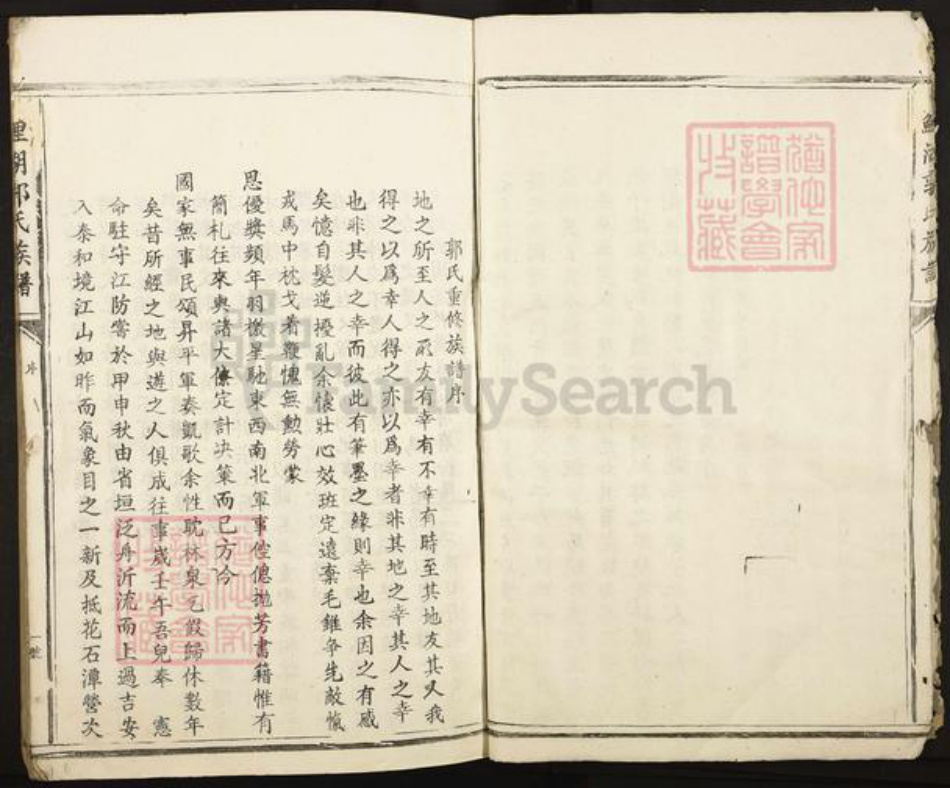 郭氏重修族譜序
地之所至人之所友有幸有不幸有時至其地友其人我
得之以爲幸人得之亦以爲幸者非其地之幸其人之幸
也非其人之幸而彼此有筆墨之緣則幸也余因之有感
矣憶自髮逆擾亂余懷壯心效班定遠棄毛錐爭先敵愾
戎馬中枕戈着鞭愧無勲勞蒙
恩優獎頻年羽檄星馳東西南北軍事倥偬拋芳書籍惟有
簡札往來與諸大僚定計決策而已方今
國家無事民頌昇平軍奏凱歌余性耽林泉乞假歸休數年
矣昔所經之地與遊之人俱成往事歲壬午吾兒奉 憲
命駐守江防嘗於甲申秋由省垣泛舟沂流而上過吉安
入泰和境江山如昨而氣象目之一新及抵花石潭營次
氏族譜
序
FamilySearch